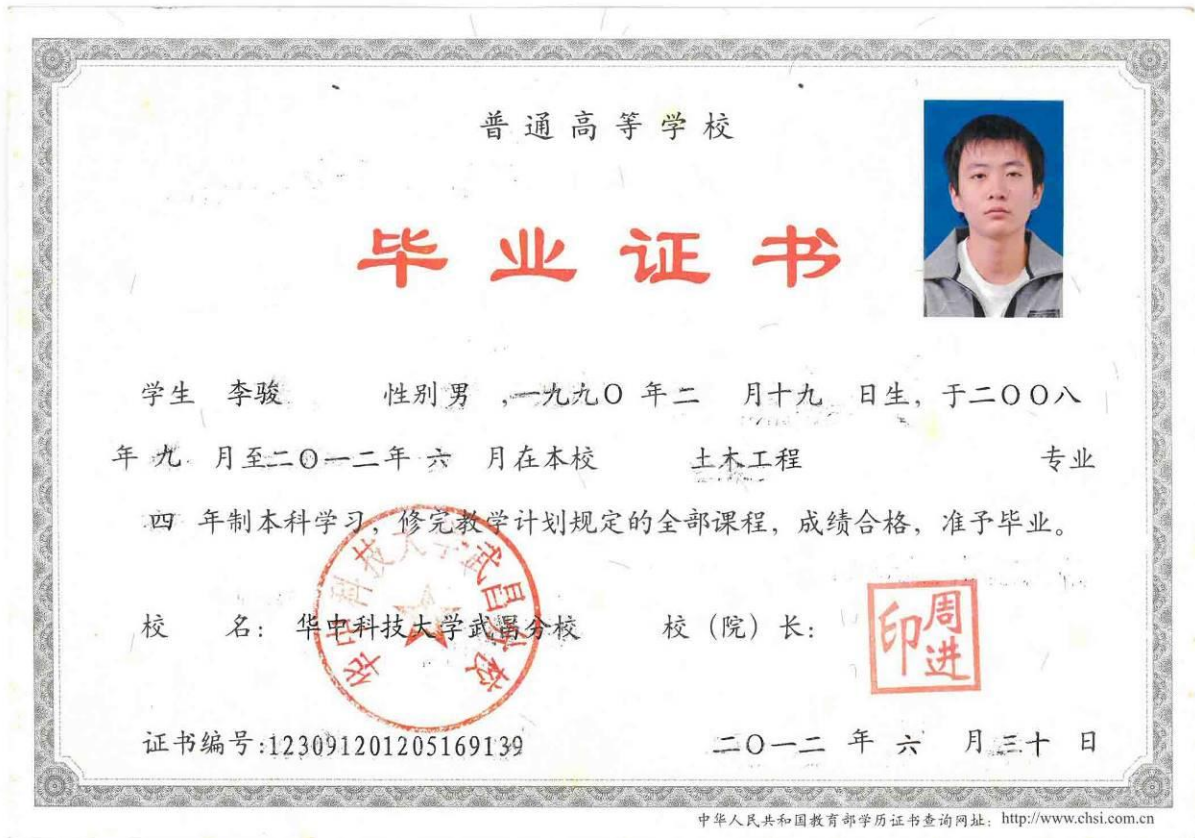 普通高等学校
毕业证书
学生 李骏 性别男 ,一九九〇年二 月十九 日生, 于二〇〇八
年 九 月至二〇一二年 六 月在本校 土木工程 专业
四 年制本科学习, 修完教学计划规定的全部课程, 成绩合格, 准予毕业。
华中科技大学武昌分校
校 名: 华中科技大学武昌分校 校(院)长:
周进
印
证书编号:123091201205169139 二〇一二 年 六 月三十 日
中华人民共和国教育部学历证书查询网址: http://www.chsi.com.cn